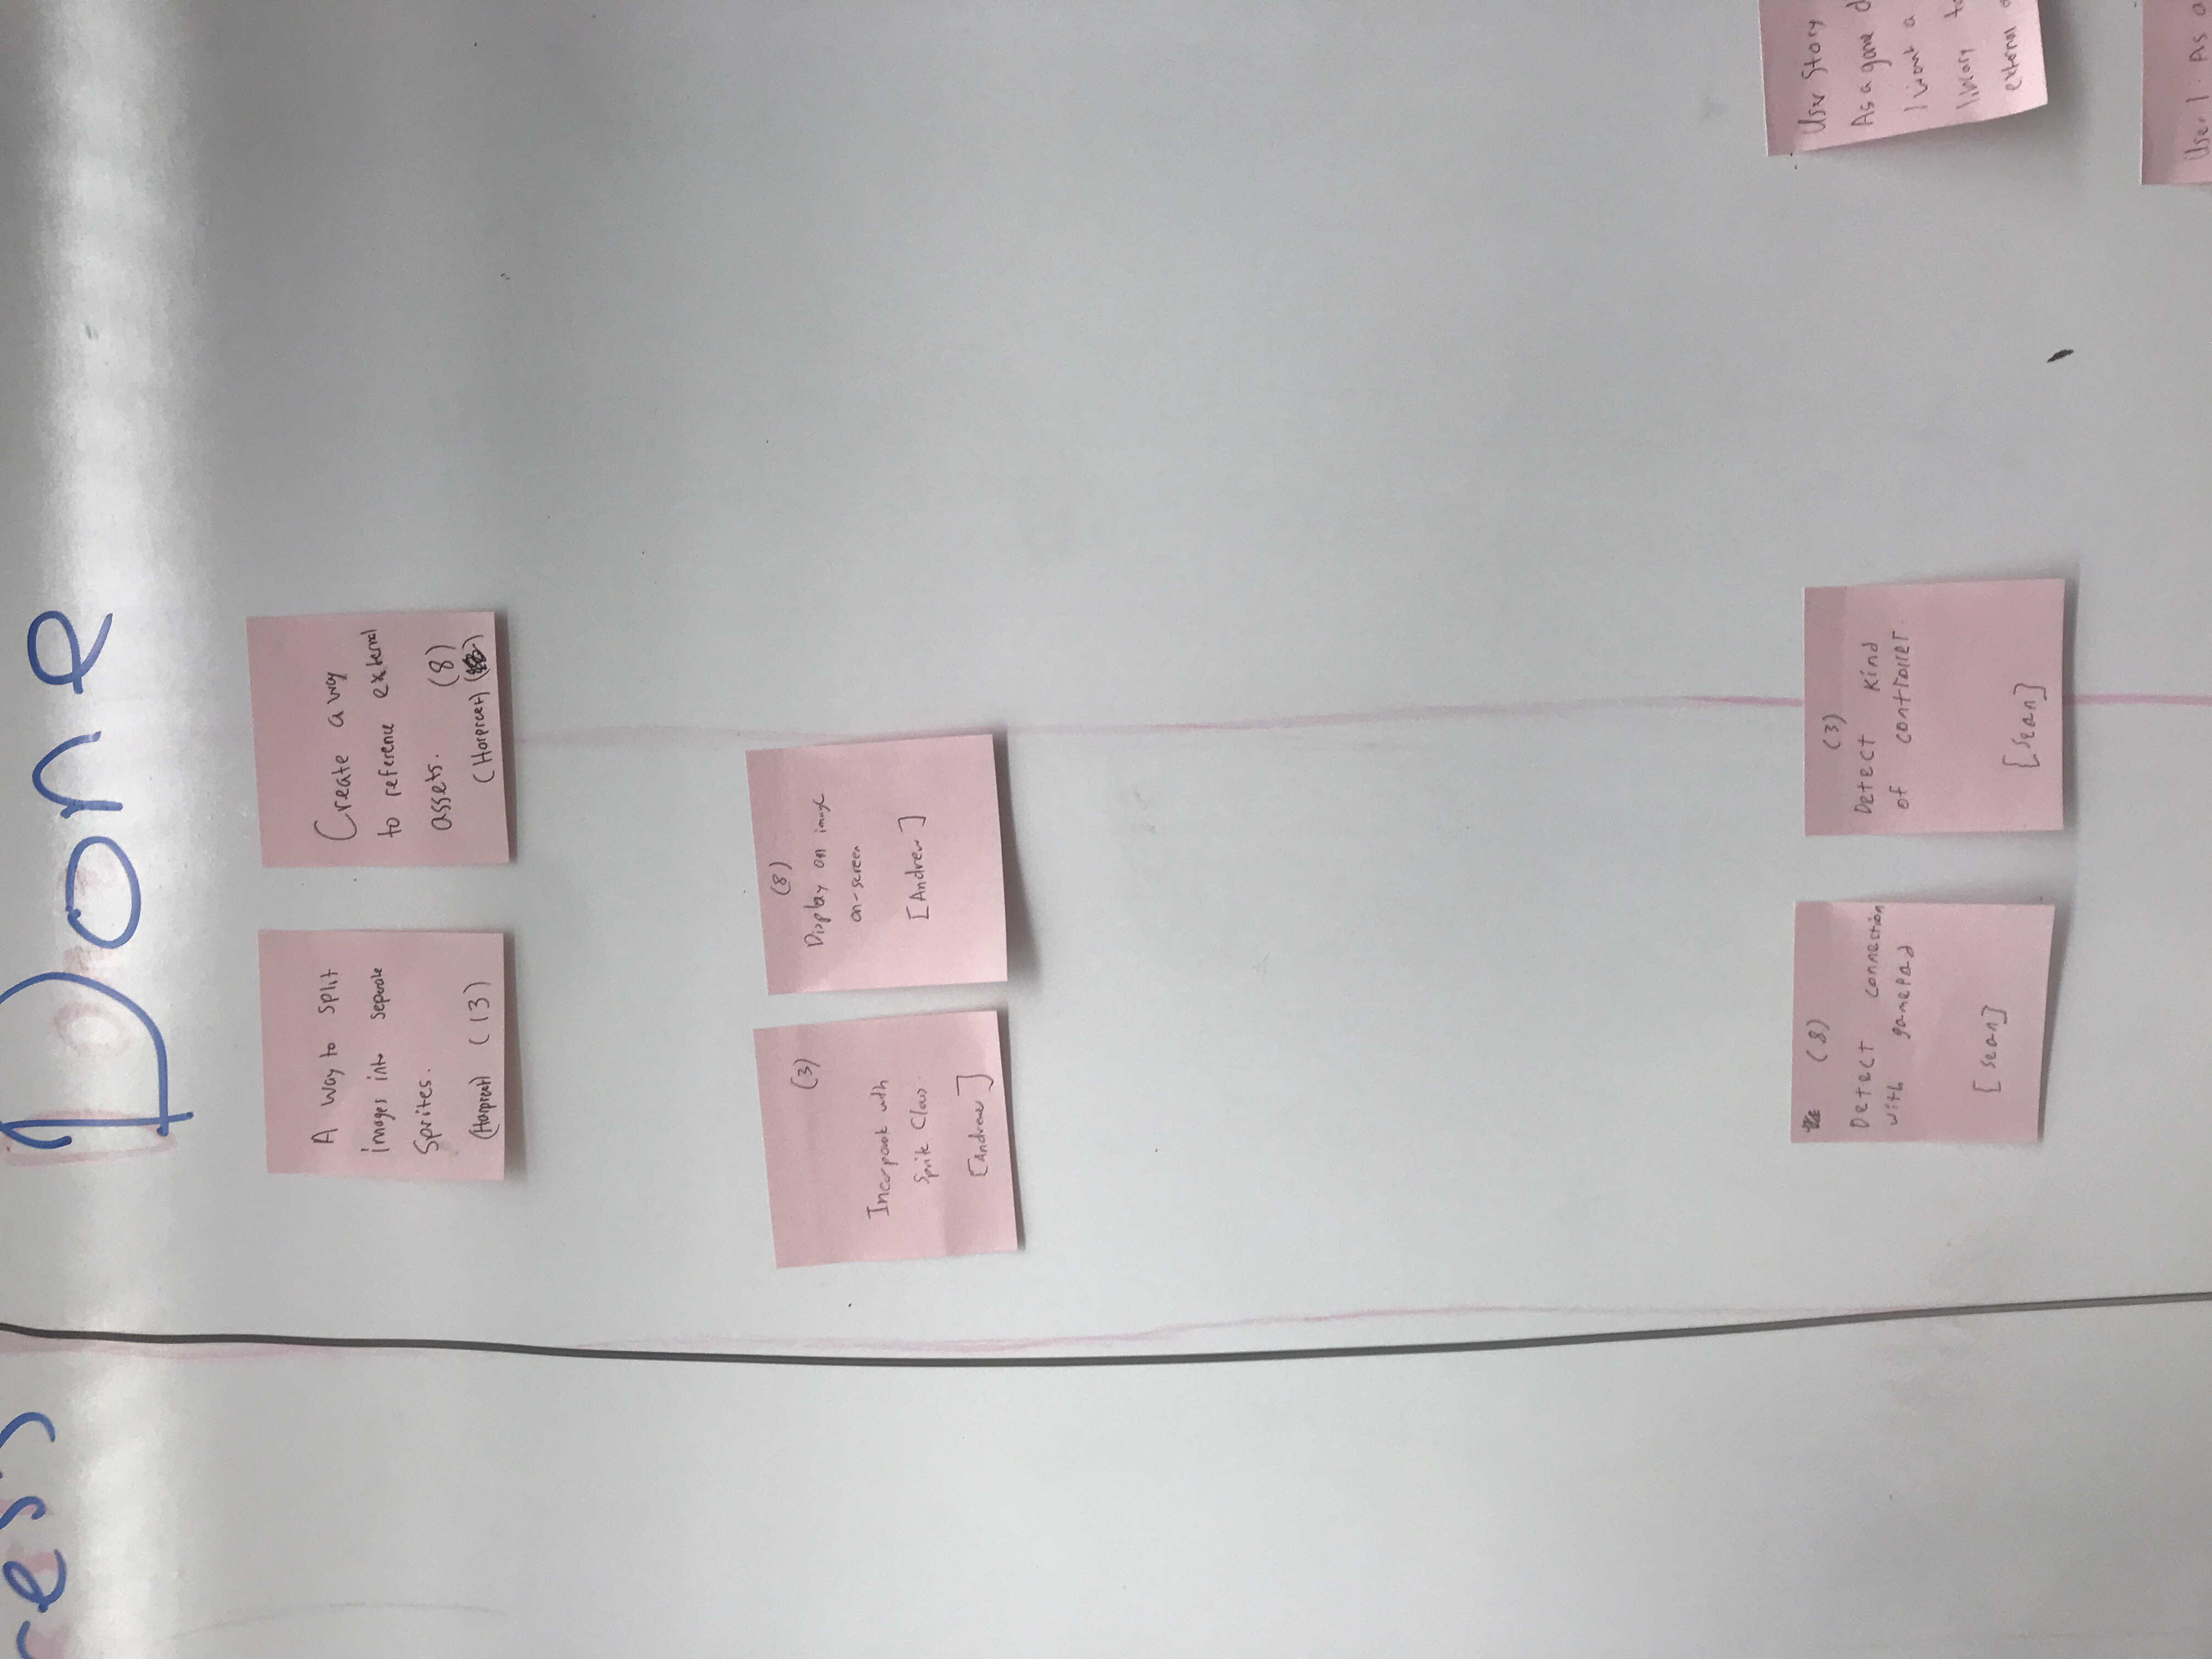 ress
Done
A way to split
images into separate
Sprites.
(Harpreet) (13)
Create a way
to reference external
assets. (8)
(Harpreet)
(3)
Incorporate with
Sprite Class
[Andrew]
(8)
Display an image
on-screen
[Andrew]
(8)
Detect connection
with gamepad
[Sean]
(3)
Detect kind
of controller.
[Sean]
User Story
As a game d
I want a
library to
external a
User 1: As a